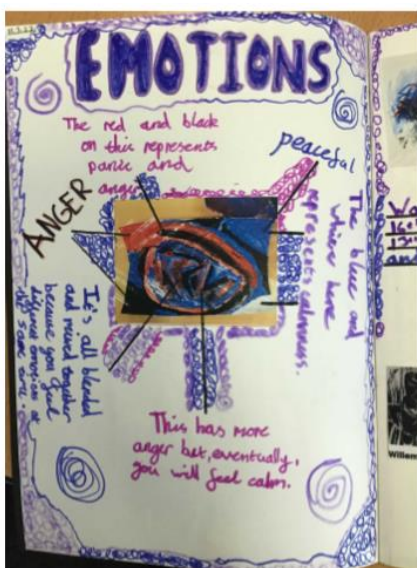 EMOTIONS
The red and black
on this represents
panic and
anger
peaceful
ANGER
The blue and
white here
represents calmness.
It's all blended
and mixed together
because you feel
different emotions at
the same time.
This has more
anger but, eventually,
you will feel calm.
Willem